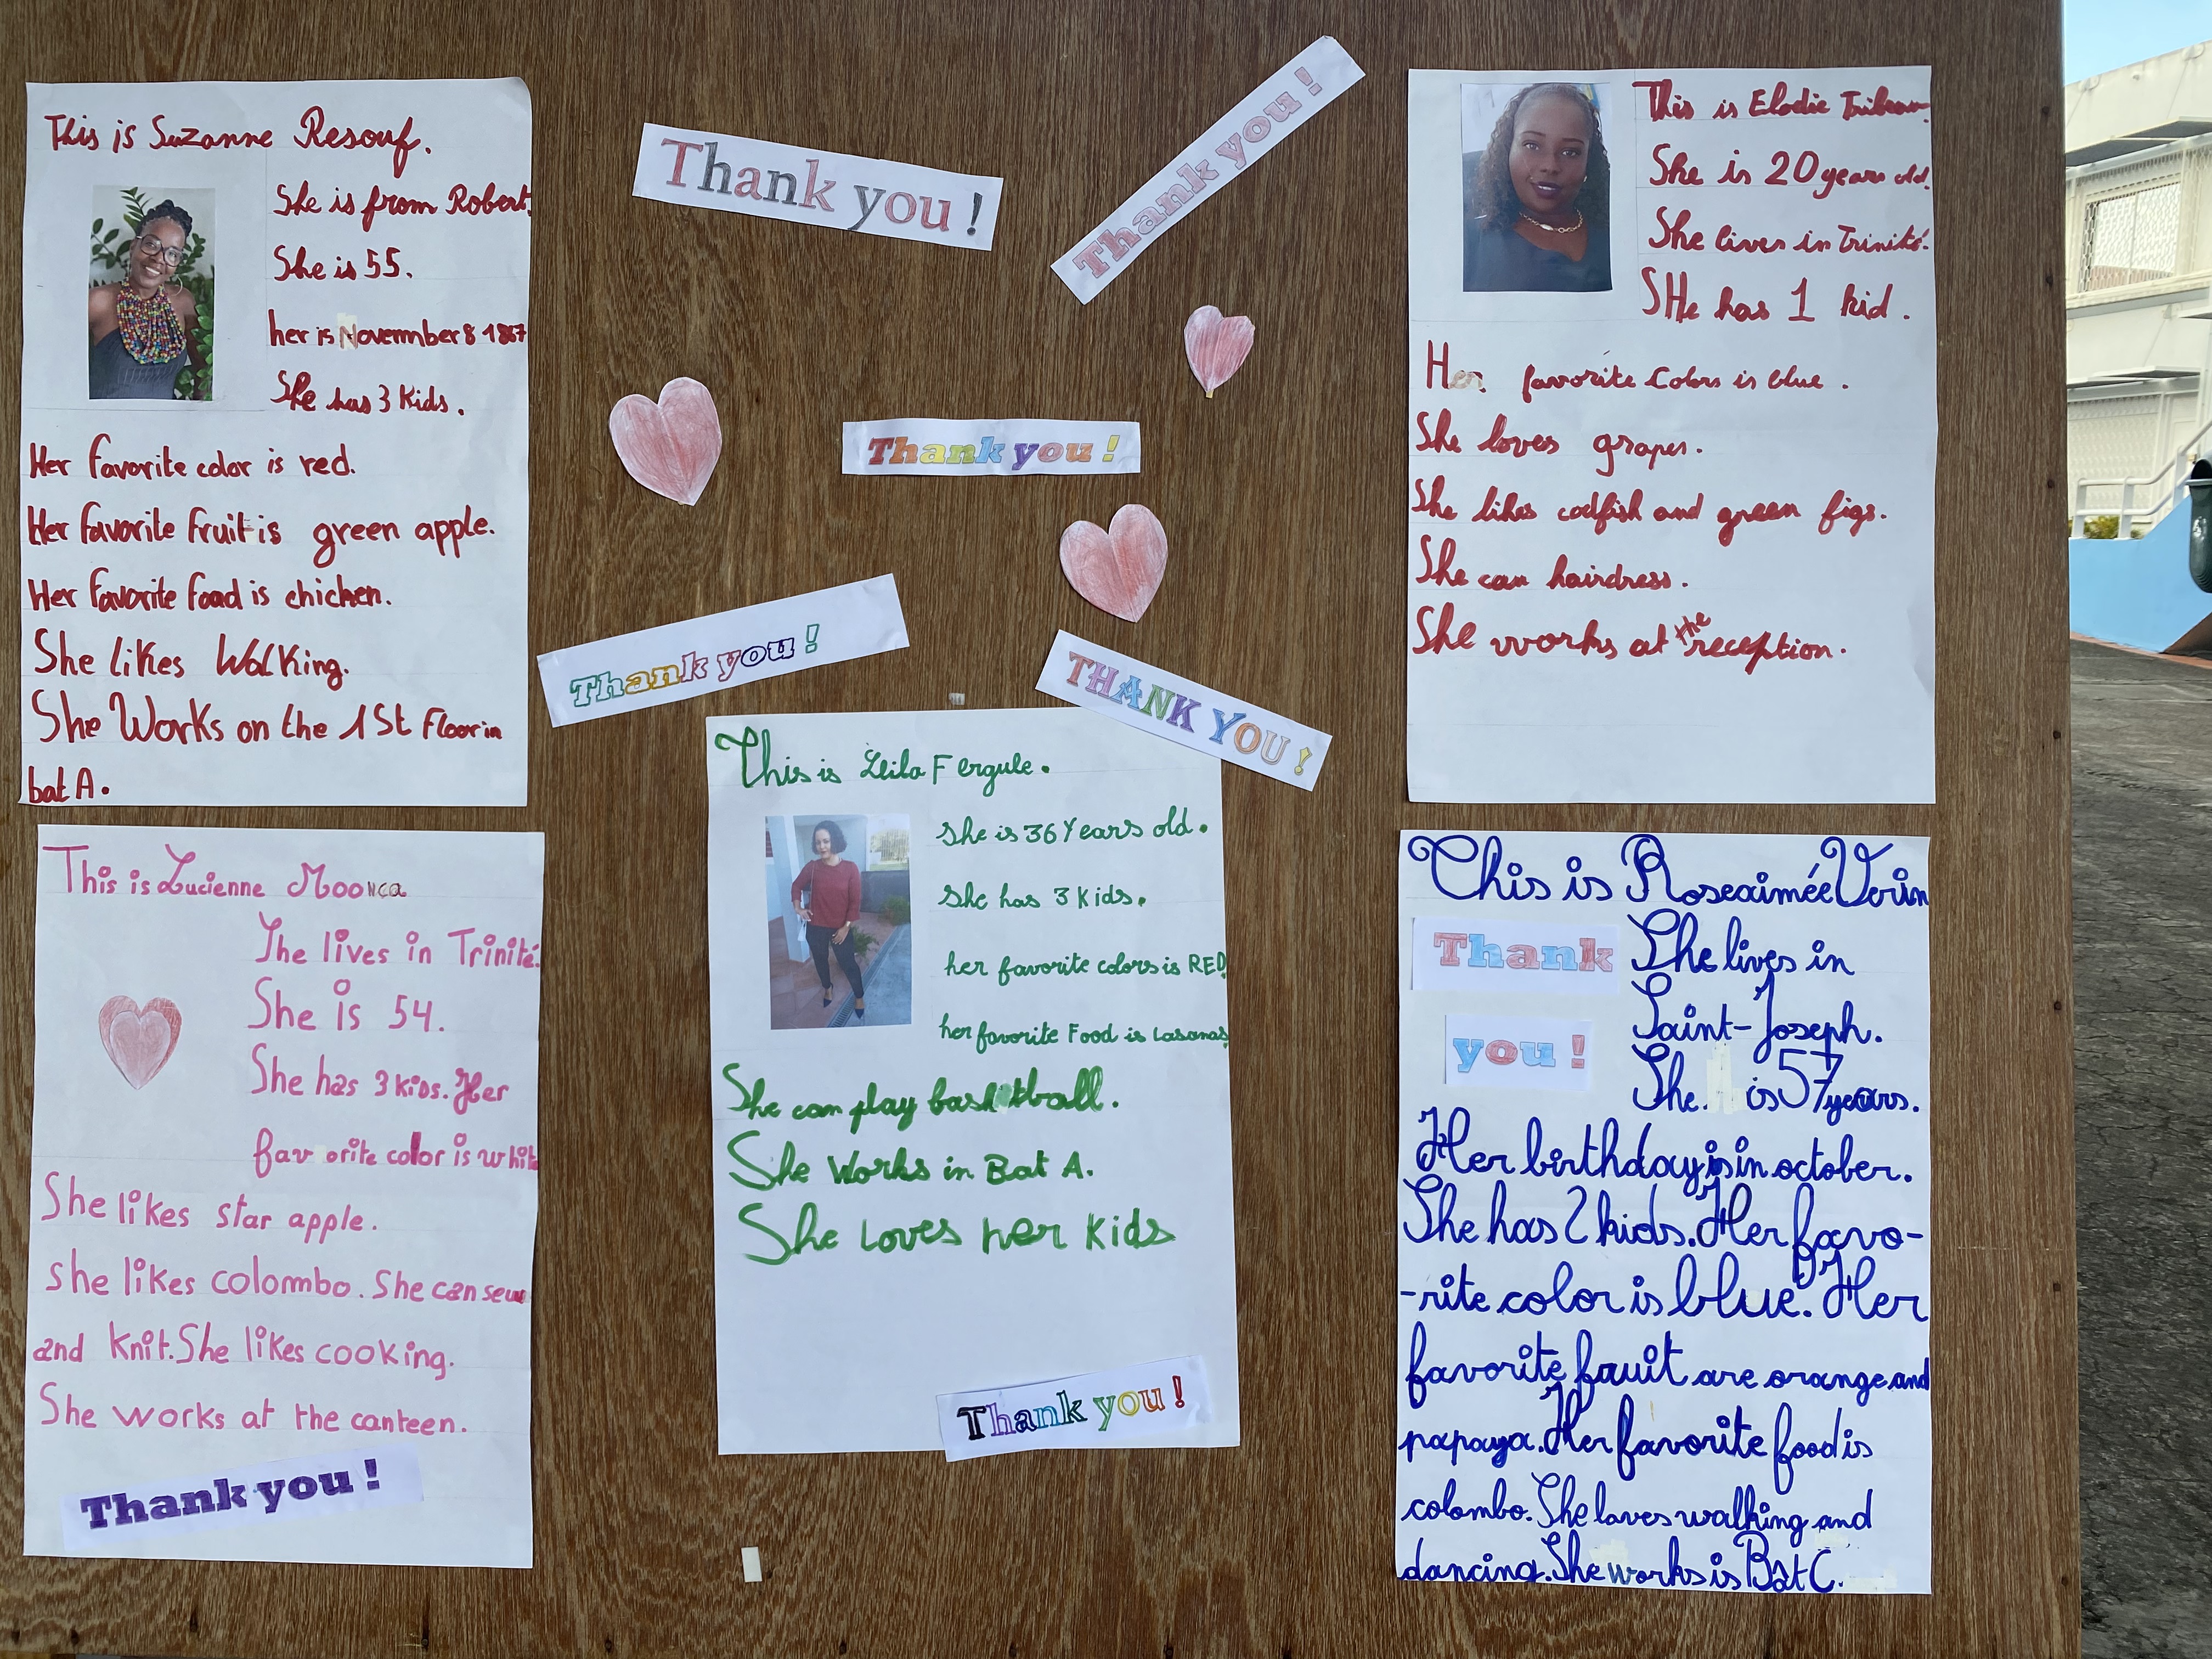 This is Suzanne Resouf.
She is from Robert.
She is 55.
her is Novermber 8 1867
She has 3 Kids.
Her favorite color is red.
Her favorite fruit is green apple.
Her favorite food is chicken.
She likes Walking.
She Works on the 1St Floor in
bat A.
Thank you !
Thank you !
Thank you !
Thank you !
THANK YOU !
This is Elodie
She is 20 years old.
She lives in Trinité.
SHe has 1 kid.
Her favorite Colors is blue.
She loves grapes.
She likes codfish and green figs.
She can hairdress.
She works at the reception.
This is Lucienne Moonca
She lives in Trinité.
She is 54.
She has 3 kids. Her
favorite color is white
She likes star apple.
she likes colombo. She can sew
and knit. She likes cooking.
She works at the canteen.
Thank you !
This is Leila Fergule.
she is 36 Years old.
she has 3 kids.
her favorite colors is RED.
her favorite Food is Lasanas
She can play basketball.
She Works in Bat A.
She Loves her kids
Thank you !
This is Roseaimée Vorin
Thank
you !
She lives in
Saint-Joseph.
She is 57 years.
Her birthday is in october.
She has 2 kids. Her favo-
-rite color is blue. Her
favorite fruit are orange and
papaya. Her favorite food is
colombo. She loves walking and
dancing. She works is Bat C.